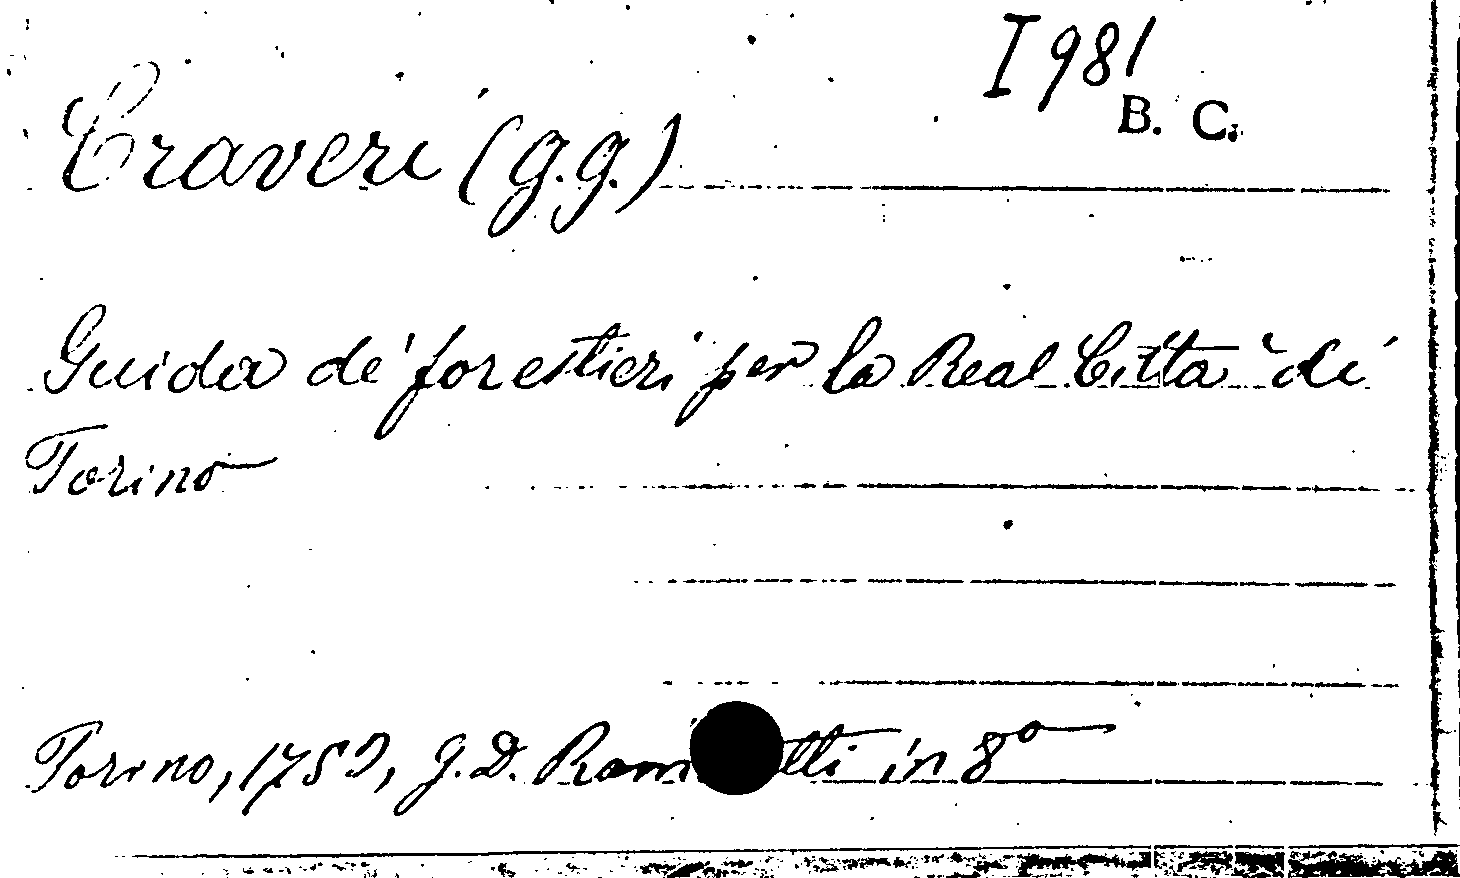 I 981
B. C.
Craveri (G. G.)
Guida de' forestieri per la Real Città di
Torino
Torino, 1753, G. D. in 8°